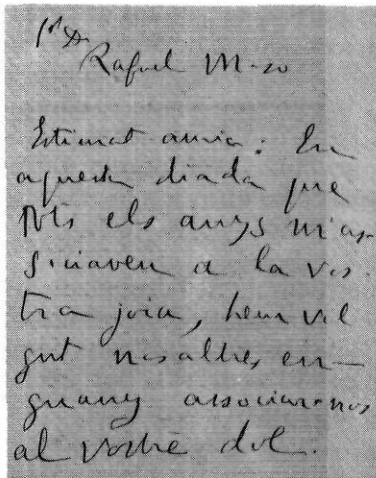 Sr Dn
Rafael Maso
Estimat amic: En
aquesta diada que
tots els anys m'as-
sociaveu a la vos-
tra joia, hem vol
gut nosaltres en-
guany associar-nos
al vostre dol.